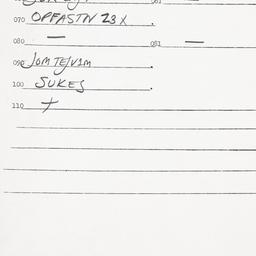 070 OPFASTN 23 X .
080 — 081 —
090 JOM TEJVIM .
100 SUKES .
110 +